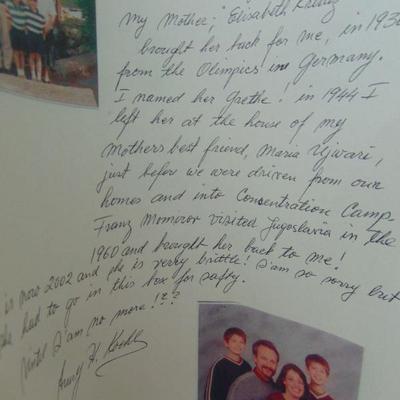 my Mother, "Elisabeth
brought her back for me, in 193
from the Olimpics in Germany.
I named her Grethe! in 1944 I
left her at the house of my
Mothers best friend, Maria Ujvari,
just before we were driven from our
homes and into Concentration Camp.
Franz Momirov visited Jugoslavia in the
1960 and brought her back to me!
is now 2002 and she is verry brittle! I am so sorry but
she had to go in this box for safty.
Until I am no more!??
H.